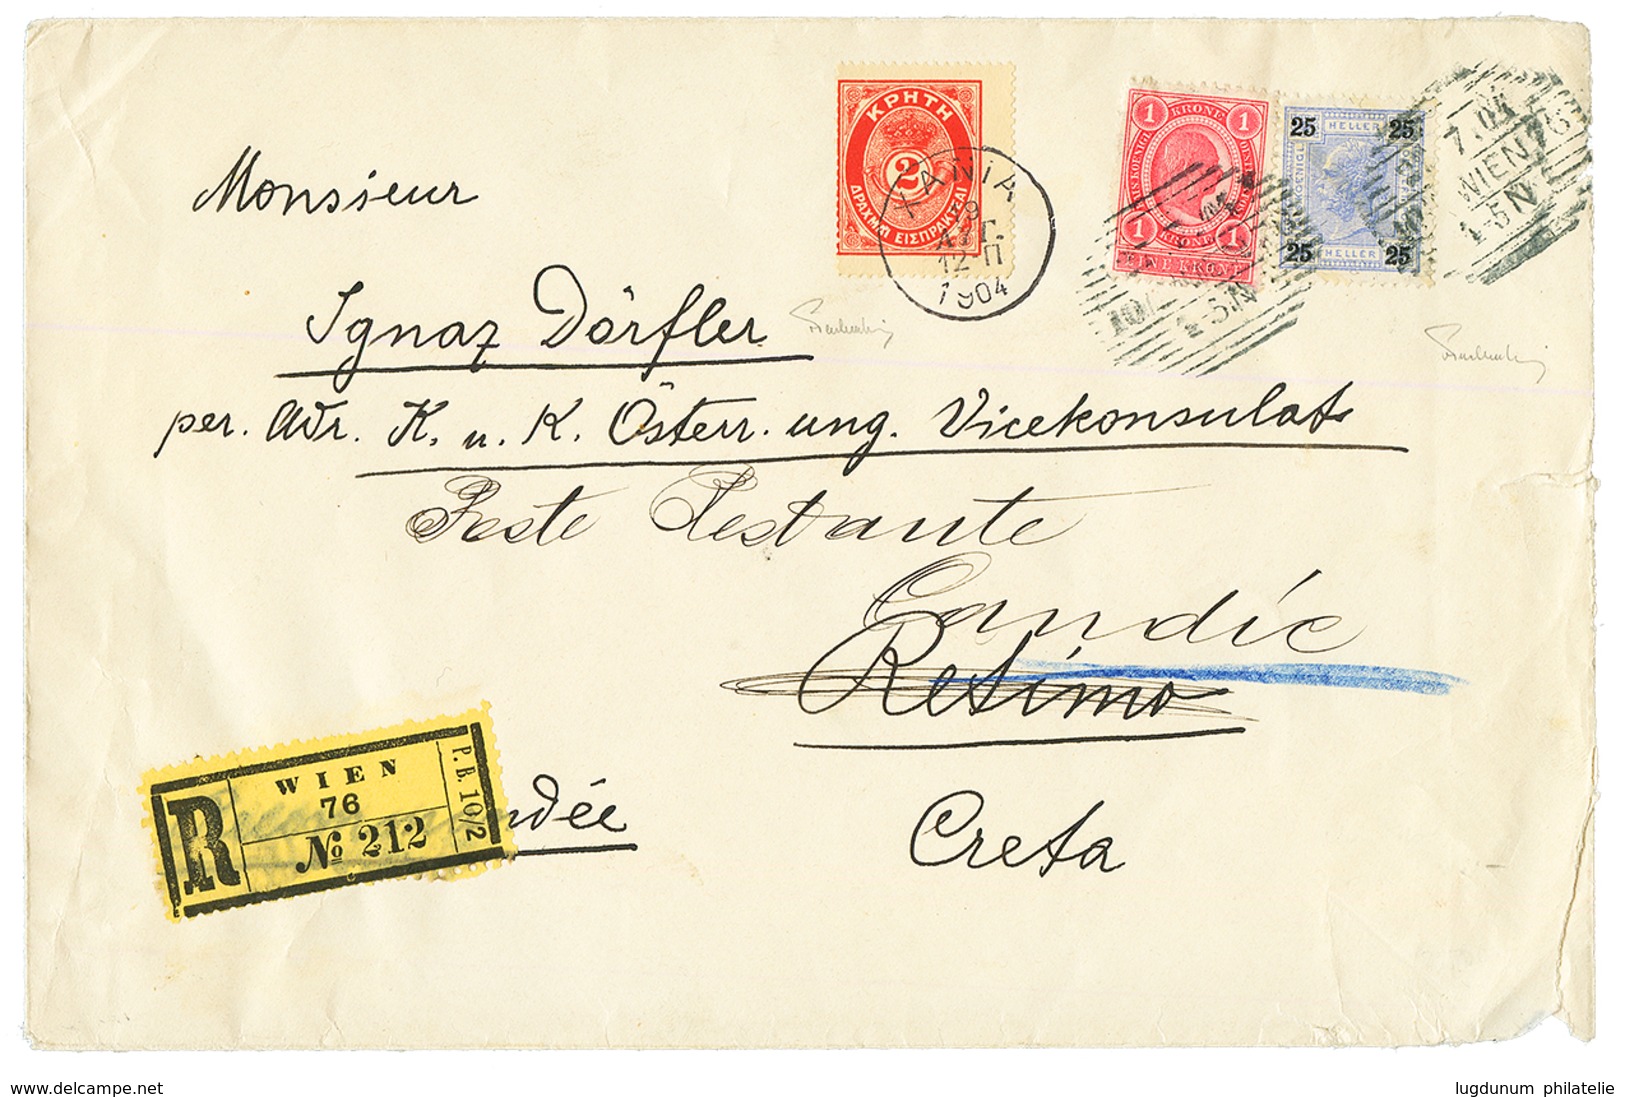 ΚΡΗΤΗ
2
ΔΡΑΧΜΑΙ ΕΙΣΠΡΑΚΤΕΑΙ
ΧΑΝΙΑ
12-Π
1904
1 KRONE 1
1 KRONE 1
EINE KRONE
25 HELLER 25
25 HELLER 25
7.04
WIEN 76
4-5N
Monsieur
Ignaz Dörfler
per. Adr. K. u. K. Österr. ung. Vicekonsulat
Poste Restante
Candie
Retimo
Creta
R
WIEN
76
№ 212
P. B. 10/2
ndée
delcampe.net
lugdunum philatelie